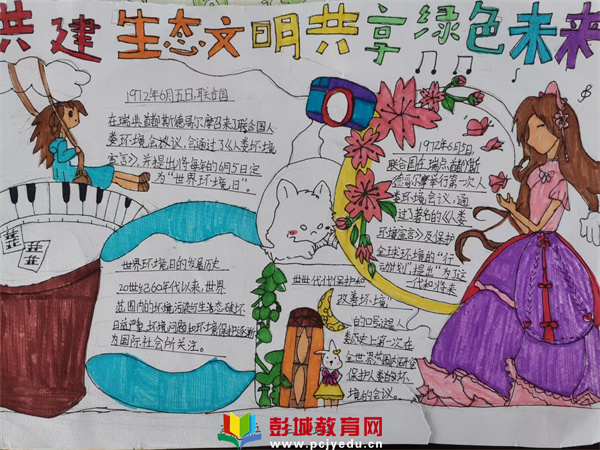 共建生态文明共享绿色未来
1972年6月五日,联合国
在瑞典首都斯德哥尔摩召来了联合国人
类环境会议,会通过了《人类环境
宣言》,并提出将每年的6月5日定
为"世界环境日"。
1972年6月5日,
联合国在瑞典首都斯
德哥尔摩举行第一次人
类环境会议,通
过了著名的《人类
环境宣言》及保护
全球环境的"行
动计划",提出"为了这
一代和将来
世世代代保护和
改善环境"
的口号,是人
类历史上第一次在
全世界范围内研究
保护人类的环
境的会议。
世界环境日的发展历史
20世纪60年代以来,世界
范围内的环境污染与生态破坏
日益严重,环境问题和环境保护逐渐
为国际社会所关注。
彭城教育网
www.pcjyedu.cn